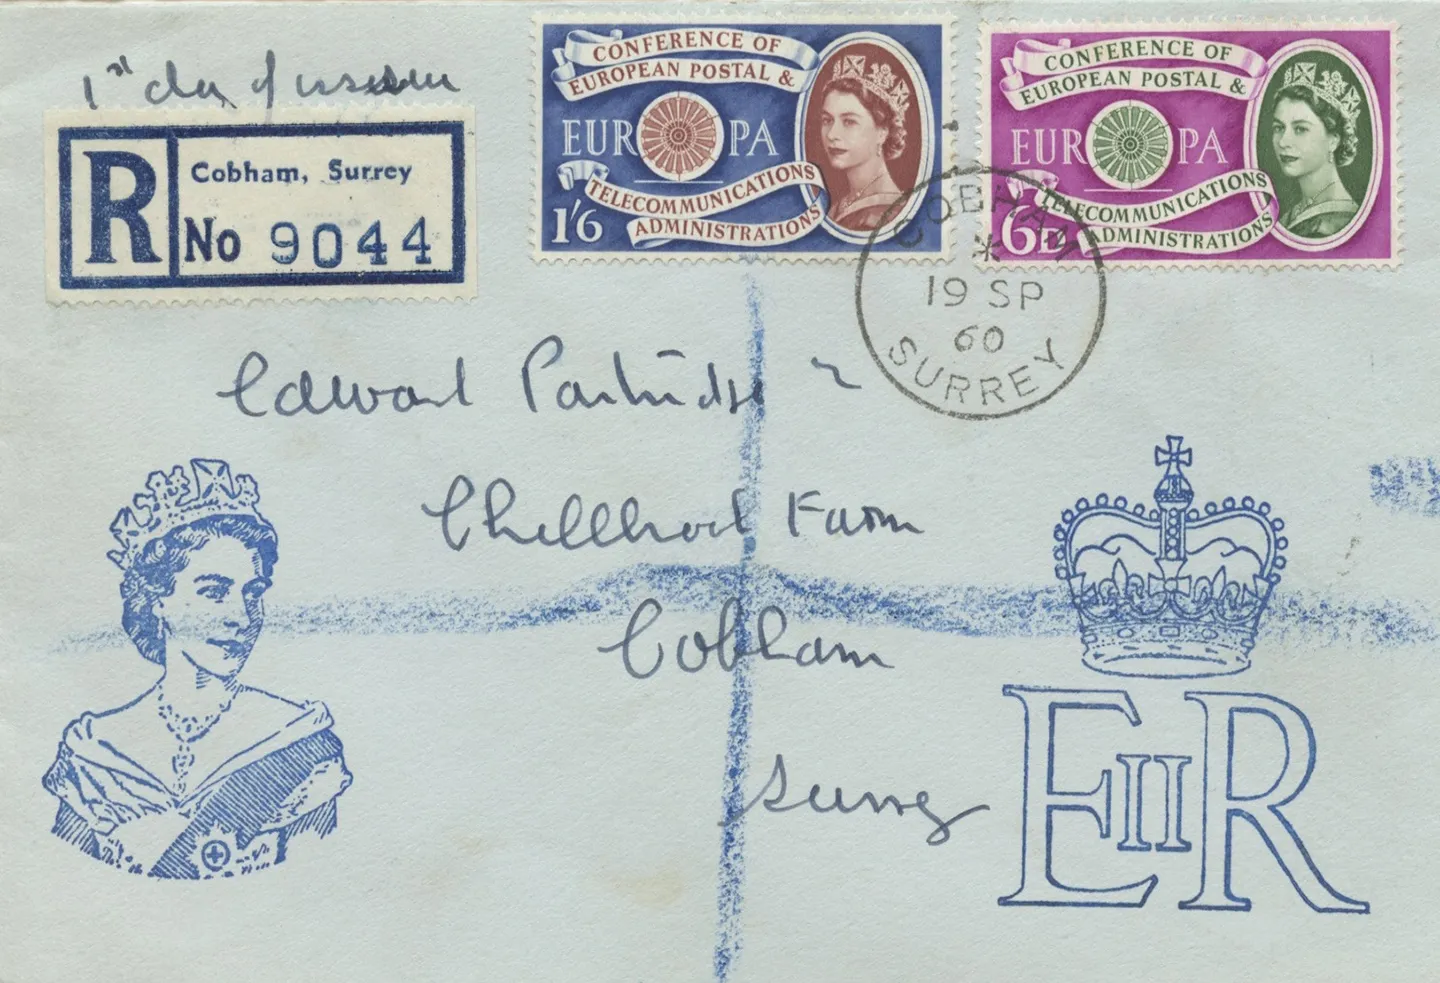 1st day of issue
R
Cobham, Surrey
No 9044
CONFERENCE OF
EUROPEAN POSTAL &
EUROPA
TELECOMMUNICATIONS
ADMINISTRATIONS
1'6
CONFERENCE OF
EUROPEAN POSTAL &
EUROPA
TELECOMMUNICATIONS
ADMINISTRATIONS
6D
COBHAM
19 SP
60
SURREY
Edward Partridge
Farm
Cobham
Surrey
EIIR